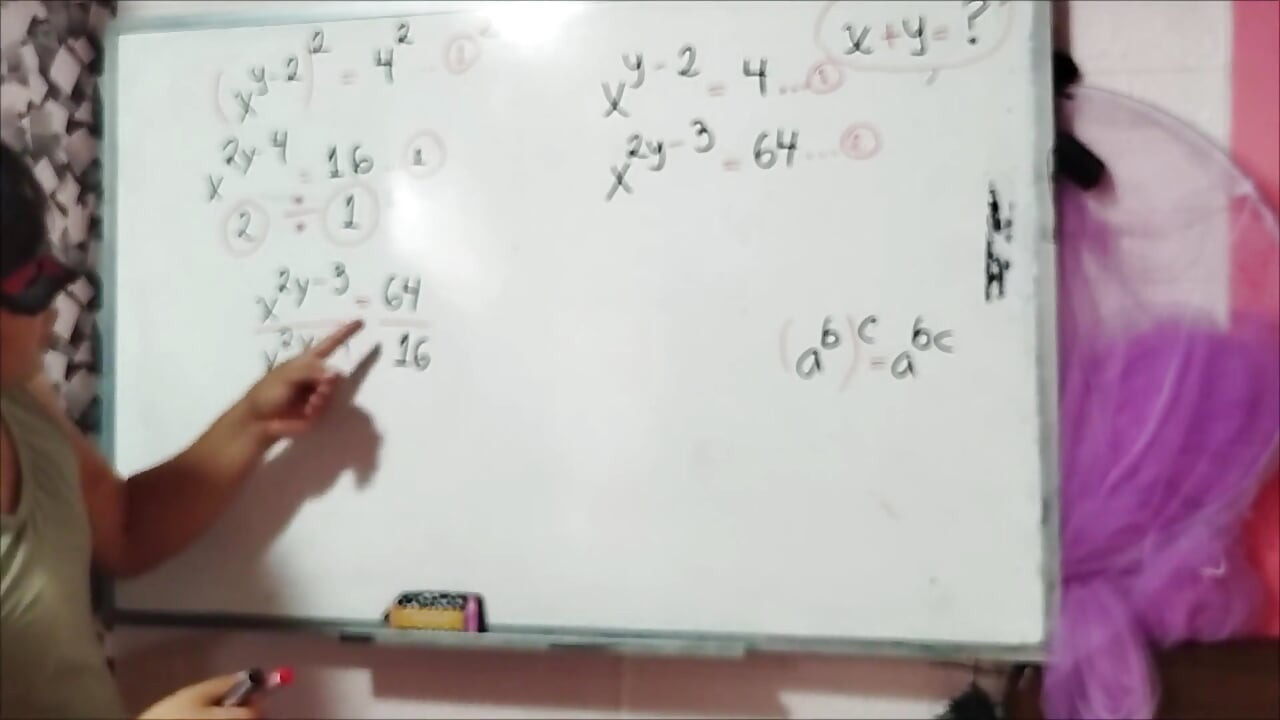 (x^{y-2})^2 = 4^2 ... ①
x^{2y-4} = 16 ... ①
② ÷ ①
x^{2y-3} = 64
x^{2y 16
x+y=?
x^{y-2} = 4 ... ①
x^{2y-3} = 64 ...
(a^b)^c = a^{bc}